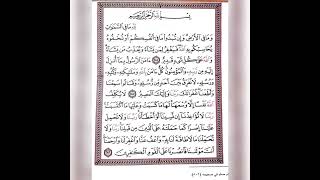 بسم الله الرحمن الرحيم
لله ما في السموات
وما في الأرض وإن تبدوا ما في أنفسكم أو تخفوه
يحاسبكم به الله فيغفر لمن يشاء ويعذب من يشاء
والله على كل شيء قدير ءامن الرسول بما أنزل
إليه من ربه والمؤمنون كل ءامن بالله وملئكته وكتبه
ورسله لا نفرق بين أحد من رسله وقالوا سمعنا
وأطعنا غفرانك ربنا وإليك المصير لا يكلف
الله نفسا إلا وسعها لها ما كسبت وعليها ما اكتسبت
ربنا لا تؤاخذنا إن نسينا أو أخطأنا ربنا ولا تحمل
علينا إصرا كما حملته على الذين من قبلنا ربنا
ولا تحملنا ما لا طاقة لنا به واعف عنا واغفر لنا وارحمنا
أنت مولىنا فانصرنا على القوم الكفرين
مسلم في صحيحه